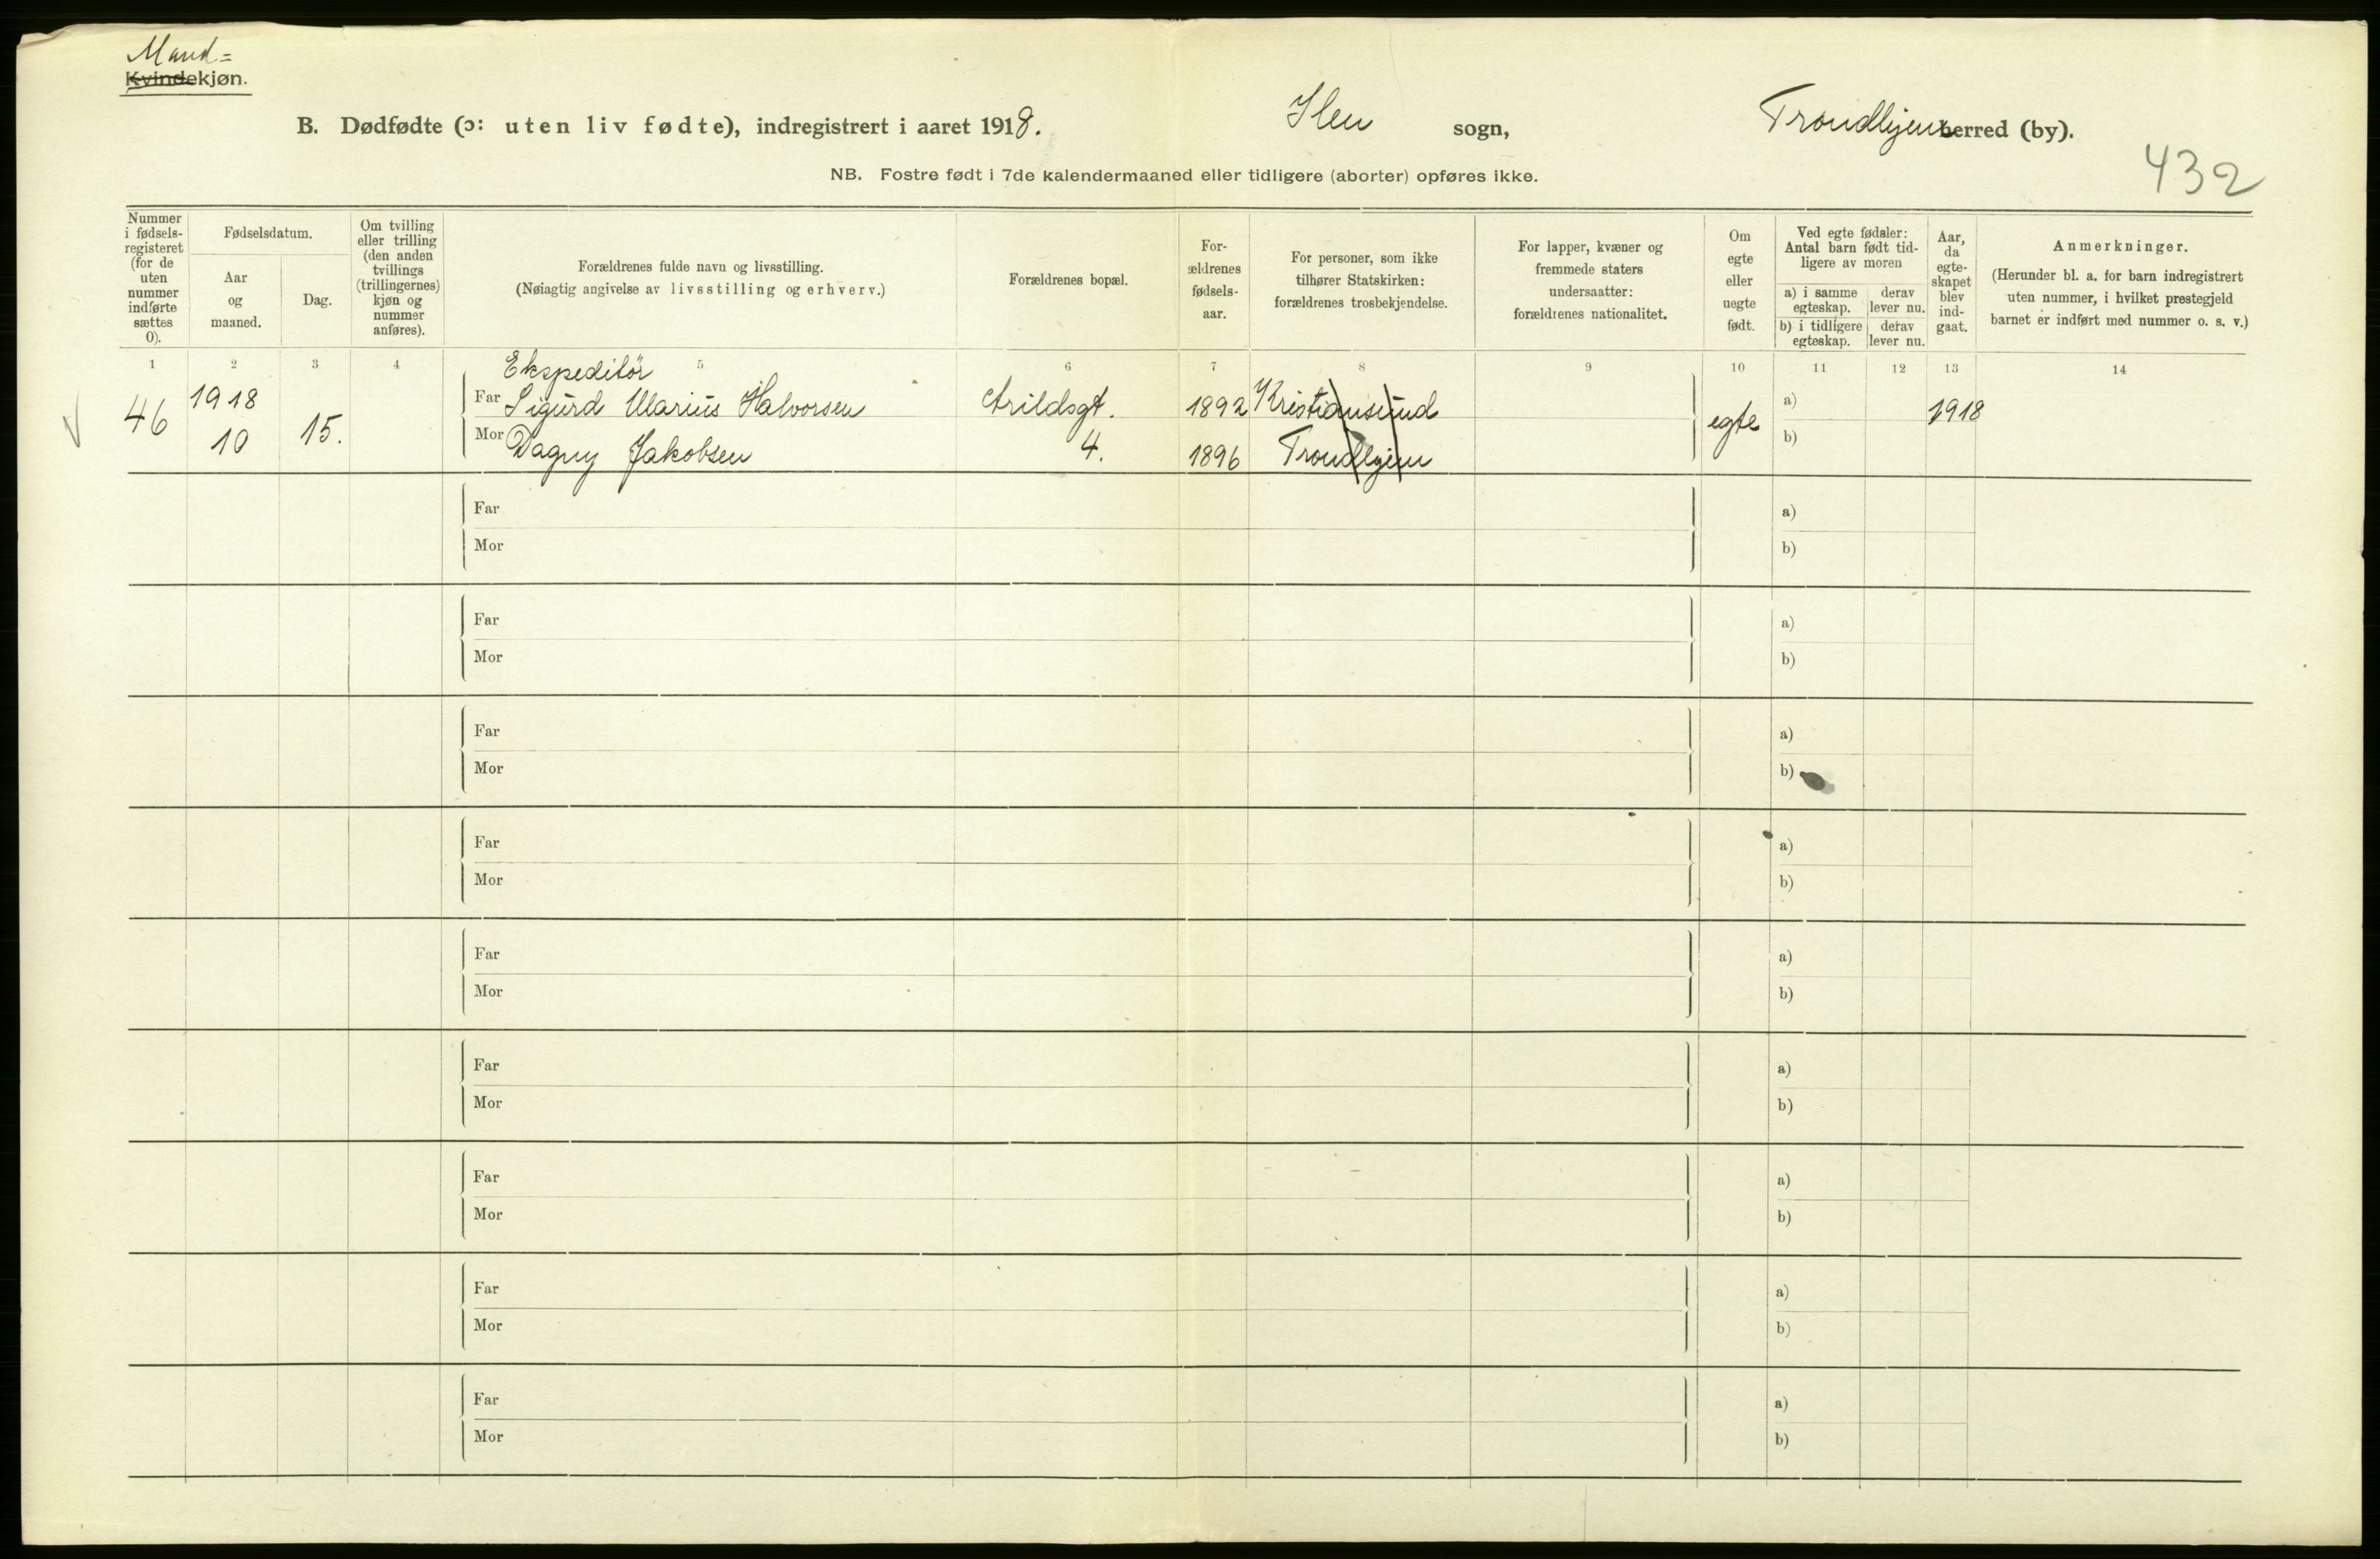 Mand=
Kvindekjøn.
B. Dødfødte (ɔ: uten liv fødte), indregistrert i aaret 1918. Ilen sogn, Trondhjem herred (by).
432
NB. Fostre født i 7de kalendermaaned eller tidligere (aborter) opføres ikke.
Nummer
i fødsels-
registeret
(for de
uten
nummer
indførte
sættes
0).
Fødselsdatum.
Aar
og
maaned.
Dag.
Om tvilling
eller trilling
(den anden
tvillings
(trillingernes)
kjøn og
nummer
anføres).
Forældrenes fulde navn og livsstilling.
(Nøiagtig angivelse av livsstilling og erhverv.)
Forældrenes bopæl.
For-
ældrenes
fødsels-
aar.
For personer, som ikke
tilhører Statskirken:
forældrenes trosbekjendelse.
For lapper, kvæner og
fremmede staters
undersaatter:
forældrenes nationalitet.
Om
egte
eller
uegte
født.
Ved egte fødsler:
Antal barn født tid-
ligere av moren
a) i samme
egteskap.
derav
lever nu.
b) i tidligere
egteskap.
derav
lever nu.
Aar,
da
egte-
skapet
blev
ind-
gaat.
Anmerkninger.
(Herunder bl. a. for barn indregistrert
uten nummer, i hvilket prestegjeld
barnet er indført med nummer o. s. v.)
1 2 3 4 5 6 7 8 9 10 11 12 13 14
Ekspeditör
46 1918 Far Sigurd Marius Halvorsen Arildsgt. 1892 Kristiansund egte a) 1918
10 15. Mor Dagny Jakobsen 4. 1896 Trondhjem b)
Far a)
Mor b)
Far a)
Mor b)
Far a)
Mor b)
Far a)
Mor b)
Far a)
Mor b)
Far a)
Mor b)
Far a)
Mor b)
Far a)
Mor b)
Far a)
Mor b)